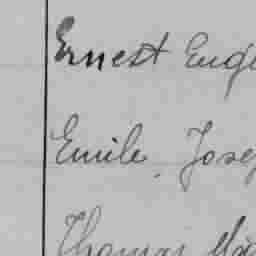 Ernest Euge
Emile, Josep
Thomas Ma